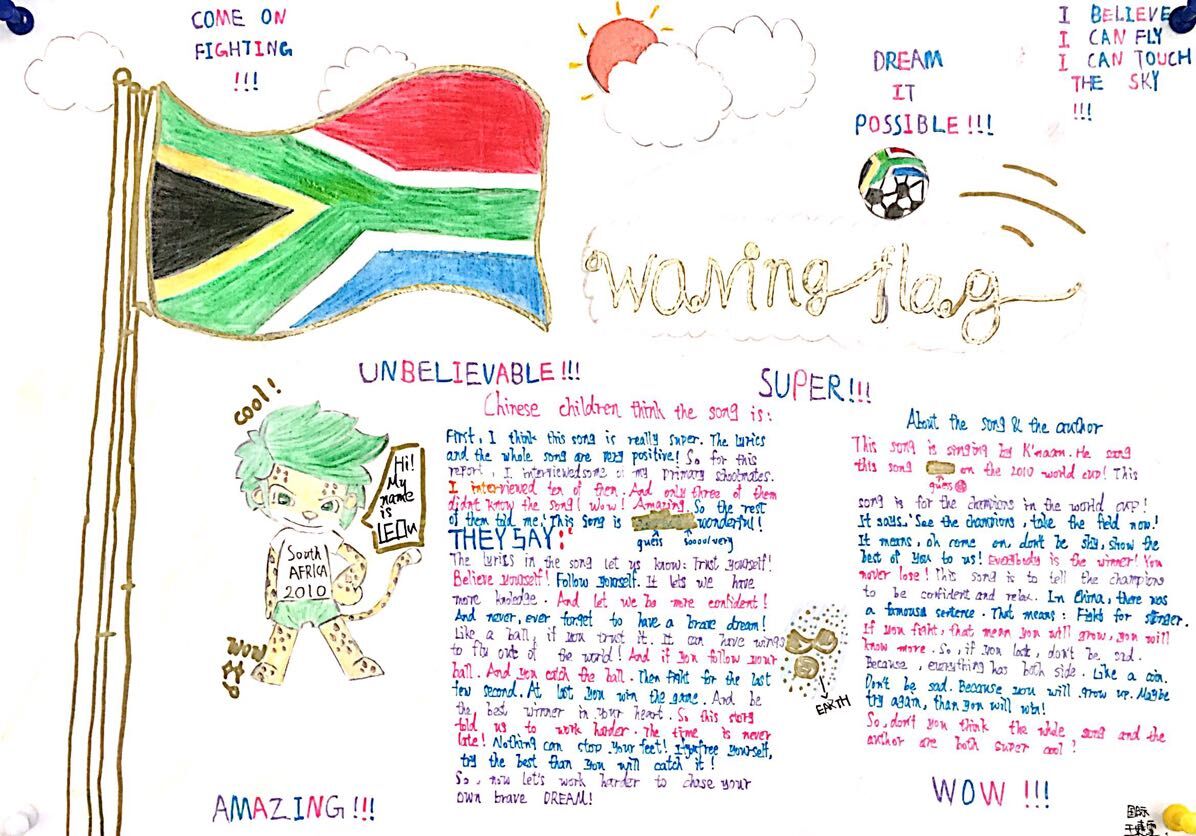 COME ON
FIGHTING
!!!
DREAM
IT
POSSIBLE!!!
I BELIEVE
I CAN FLY
I CAN TOUCH
THE SKY
!!!
waving flag
UNBELIEVABLE!!!
SUPER!!!
cool!
Hi!
My
name
is
LEOu
South
AFRICA
2010
WOW
Chinese children think the song is:
First, I think this song is really super. The lyrics
and the whole song are very positive! So for this
report, I interviewed some of my primary schoolmates.
I interviewed ten of them. And only three of them
didn't know the song! Wow! Amazing. So the rest
of them told me. This song is wonderful!
gueis soooo/very
THEY SAY:
The lyrics in the song let us know: Trust yourself!
Believe yourself! Follow yourself. It lets we have
more knoledge. And let we be more confident!
And never, ever forget to have a brave dream!
Like a ball, if you trust it. It can have wings
to fly out of the world! And if you follow your
ball. And you catch the ball. Then fight for the last
few second. At last you win the game. And be
the best winner in your heart. So this story
told us to work harder. The time is never
late! Nothing can stop your feet! If you free yourself,
try the best than you will catch it!
So, now let's work harder to chase your
own brave DREAM!
EARTH
About the song & the author
This song is singing by K'naan. He sang
this song on the 2010 world cup! This
gueis
song is for the champions in the world cup!
It says, "See the champions, take the field now!
It means, oh come on, don't be shy, show the
best of you to us! Everybody is the winner! You
never lose! This song is to tell the champions
to be confident and relax. In China, there was
a famouse sentence. That means: Fight for stronger.
If you fight, that mean you will grow, you will
know more. So, if you lost, don't be sad.
Because, everything has both side. Like a coin.
Don't be sad. Because you will grow up. Maybe
try again, than you will win!
So, don't you think the whole song and the
author are both super cool?
AMAZING!!!
WOW !!!
国际